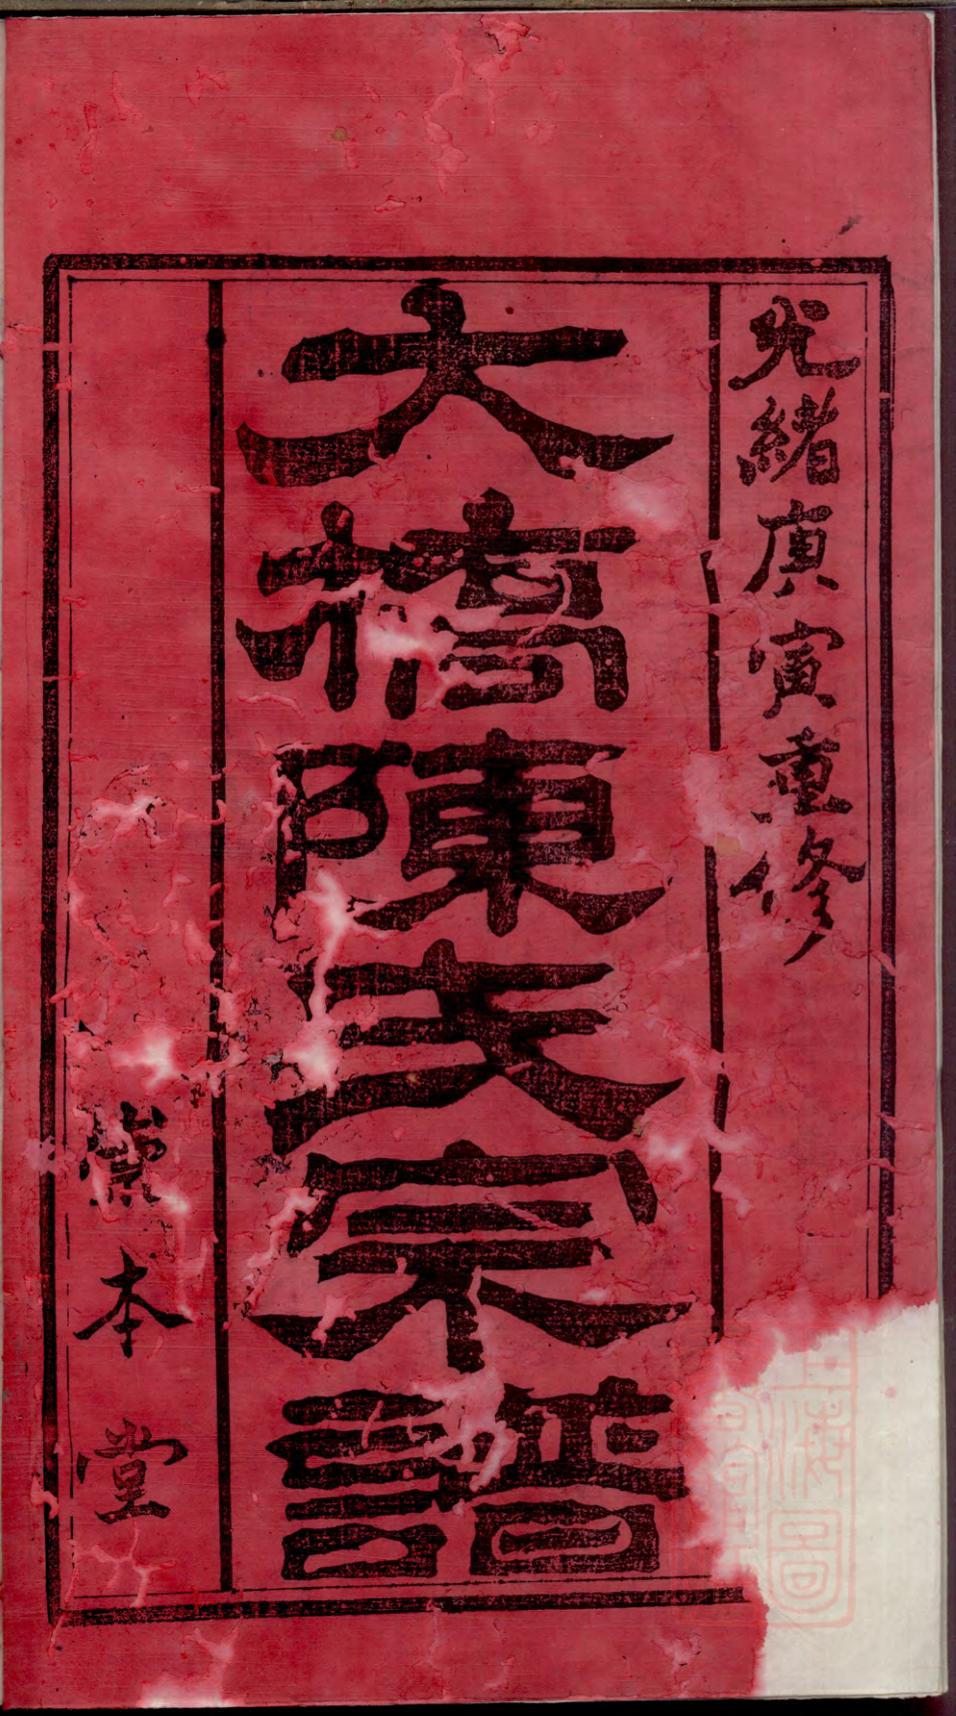 光緒庚寅重修
大橋陳氏宗譜
崇本堂